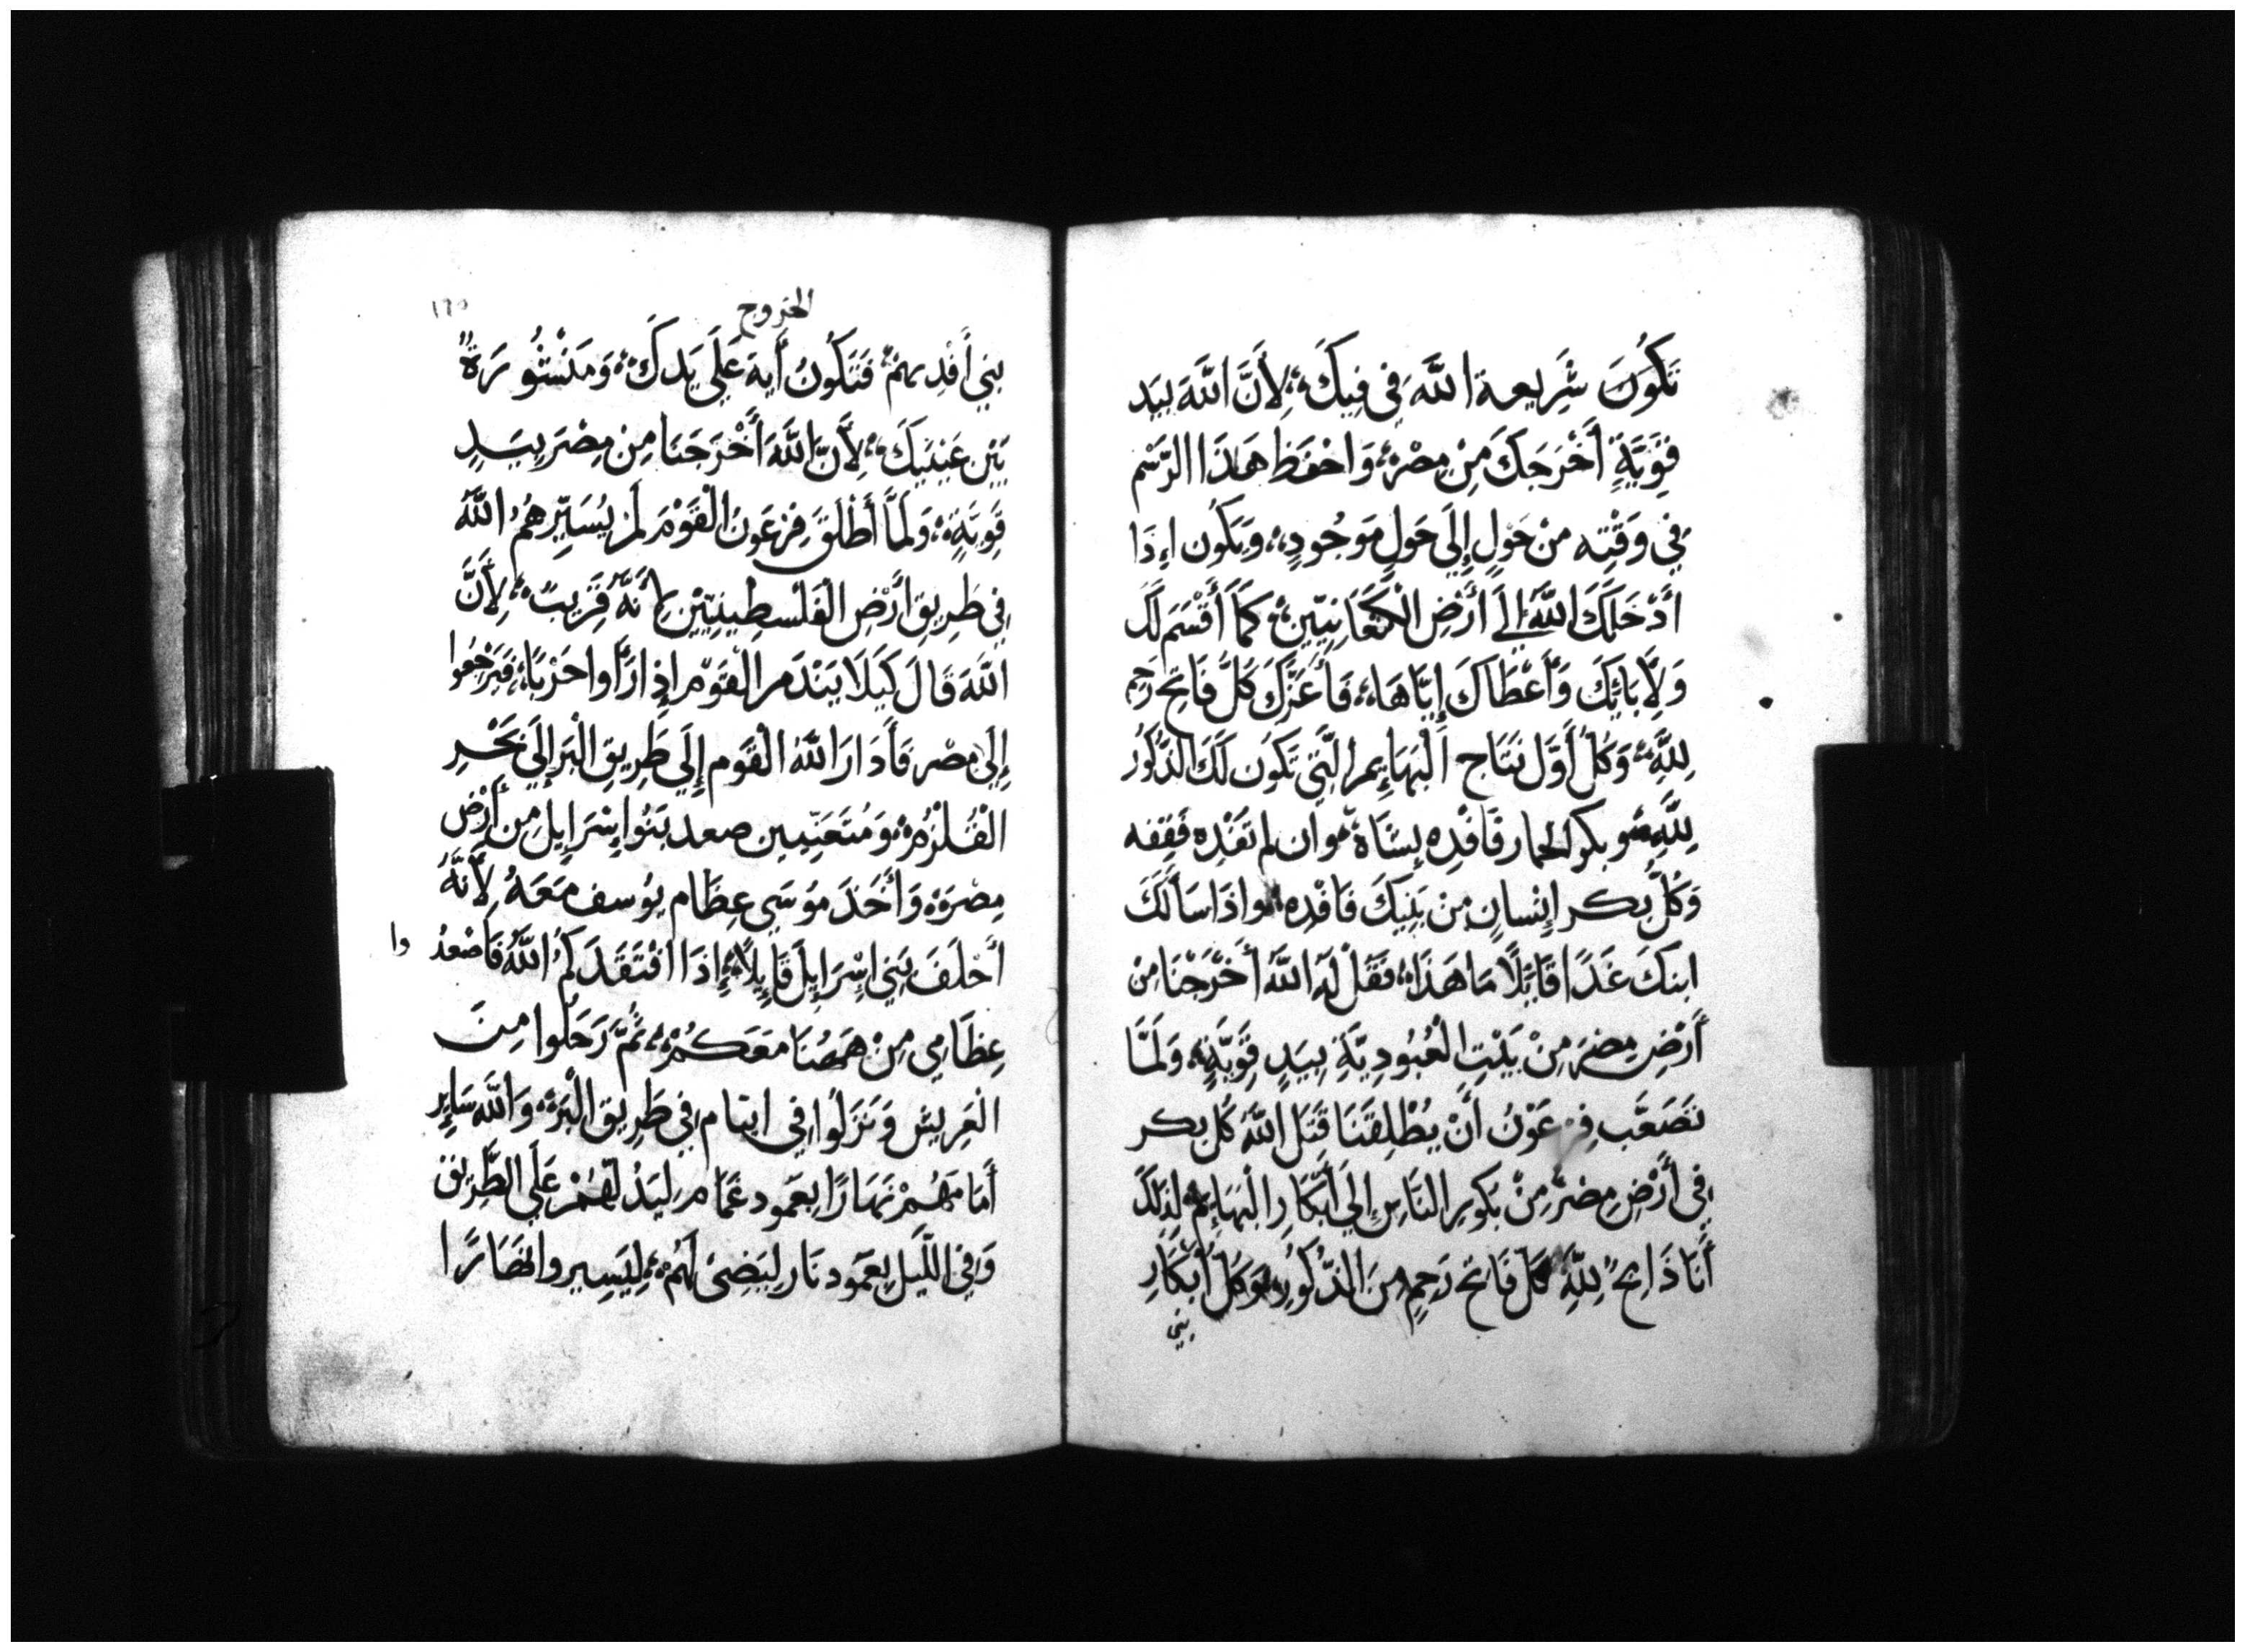 تَكُونَ شَرِيعة اللَّه فِي فِيكَ، لِأَنَّ اللَّهَ بيَد
قَوِيَّةٍ أَخْرَجَكَ مِنْ مِصْرَ، وَاحْفَظ هَذَا الرَّسْم
فِي وَقْتِه مِنْ حَولٍ إِلَى حَولٍ مَوجُودٍ، وَيَكُون اِذَا
أَدْخَلَكَ اللَّهُ إِلَى أَرْضِ الْكَنْعَانِيّينَ، كَمَا أَقْسَمَ لَكَ
وَلِآبَايِكَ وَأَعْطَاكَ إِيَّاهَا، فَأَعْزِلْ كُلَّ فَاتِح رَحِم
لِلَّهِ، وَكُلُّ أَوَّل نَتَاج الْبَهَايِم الَّتِي تَكُون لَكَ الذُّكُور
لِلَّهِ، وبكر الحمار فَافْدِه بِشَاة، وان لم تَفْدِه فَقِفه
وَكُلُّ بِكر إِنْسانٍ مِنْ بَنِيكَ فَافْدِه، واذَا سَأَلَكَ
ابنكَ غَدًا قَايِلًا مَا هَذَا، فَقُلْ لَهُ اللَّهُ أَخْرَجْنَا مِن
أَرْضِ مِصْرَ مِنْ بَيْتِ الْعُبُودِيَّةِ بِيَدٍ قَوِيَّةٍ، وَلَمَّا
تَصَعَّب فِرْعَوْنُ أَنْ يُطْلِقَنَا قَتَل اللَّهُ كُلّ بِكر
فِي أَرْضِ مِصْرَ مِنْ بُكورِ النَّاسِ إِلَى أَبْكَارِ الْبَهَايِم، لِذَلِكَ
أَنَا ذَابِحٌ لِلَّهِ كُلّ فَاتِح رَحِمٍ مِنَ الذُّكُورِ، وَكُلّ أَبْكَارِ
بني
الخروج
١٢٥
بَنِي أَفْدِيهِمْ، فَتَكُونُ أَيَة عَلَى يَدكَ، وَمَنْشُورَةً
بَيْن عَيْنَيكَ، لِأَنَّ اللَّهَ أَخْرَجَنَا مِن مِصْرَ بِيَدٍ
قَوِيَّةٍ، وَلَمَّا أَطْلَقَ فِرْعَونُ الْقَوْمَ لَمْ يُسَيِّرهُمُ اللَّهُ
فِي طَرِيق أَرْضِ الْفَلَسطِينِيّيْن لِأَنَّهُ قَرِيبٌ، لِأَنَّ
اللَّهَ قَالَ كَيلَا يَنْدَم الْقَوم إِذَا رَأَوا حَرْبًا، فَيَرْجِعُوا
إِلَى مِصْر فَأَدَارَ اللَّهُ الْقَوم إِلَى طَرِيقِ الْبَر إِلَى بَحْرِ
الْقُلْزُم، وَمُتَعَبِّيين صعد بَنُوا إِسْرَايِل مِن أَرْضِ
مِصْرَ، وَأَخَذَ مُوسَى عِظَام يُوسف مَعَهُ لِأَنَّهُ
أَحْلَفَ بَنِي اسْرَايِلَ قَايِلًا، إِذَا افْتَقَدَكُمُ اللَّهُ فَاصْعدُ وا
عِظَامِي مِنْ هَهُنَا مَعَكُمْ، ثُمَّ رَحَلُوا مِنَ
الْعَرِيش وَنَزَلُوا فِي ايتام فِي طَرِيق الْبَر، وَاللَّهُ سَايِر
أَمَامَهُمْ نَهَارًا بِعَمُود غَمَام لِيَدُلَّهُمْ عَلَى الطَّرِيق
وَفِي اللَّيل بِعَمُود نَار لِيَضِئ لَهُمْ، لِيَسِيروا نَهَارًا